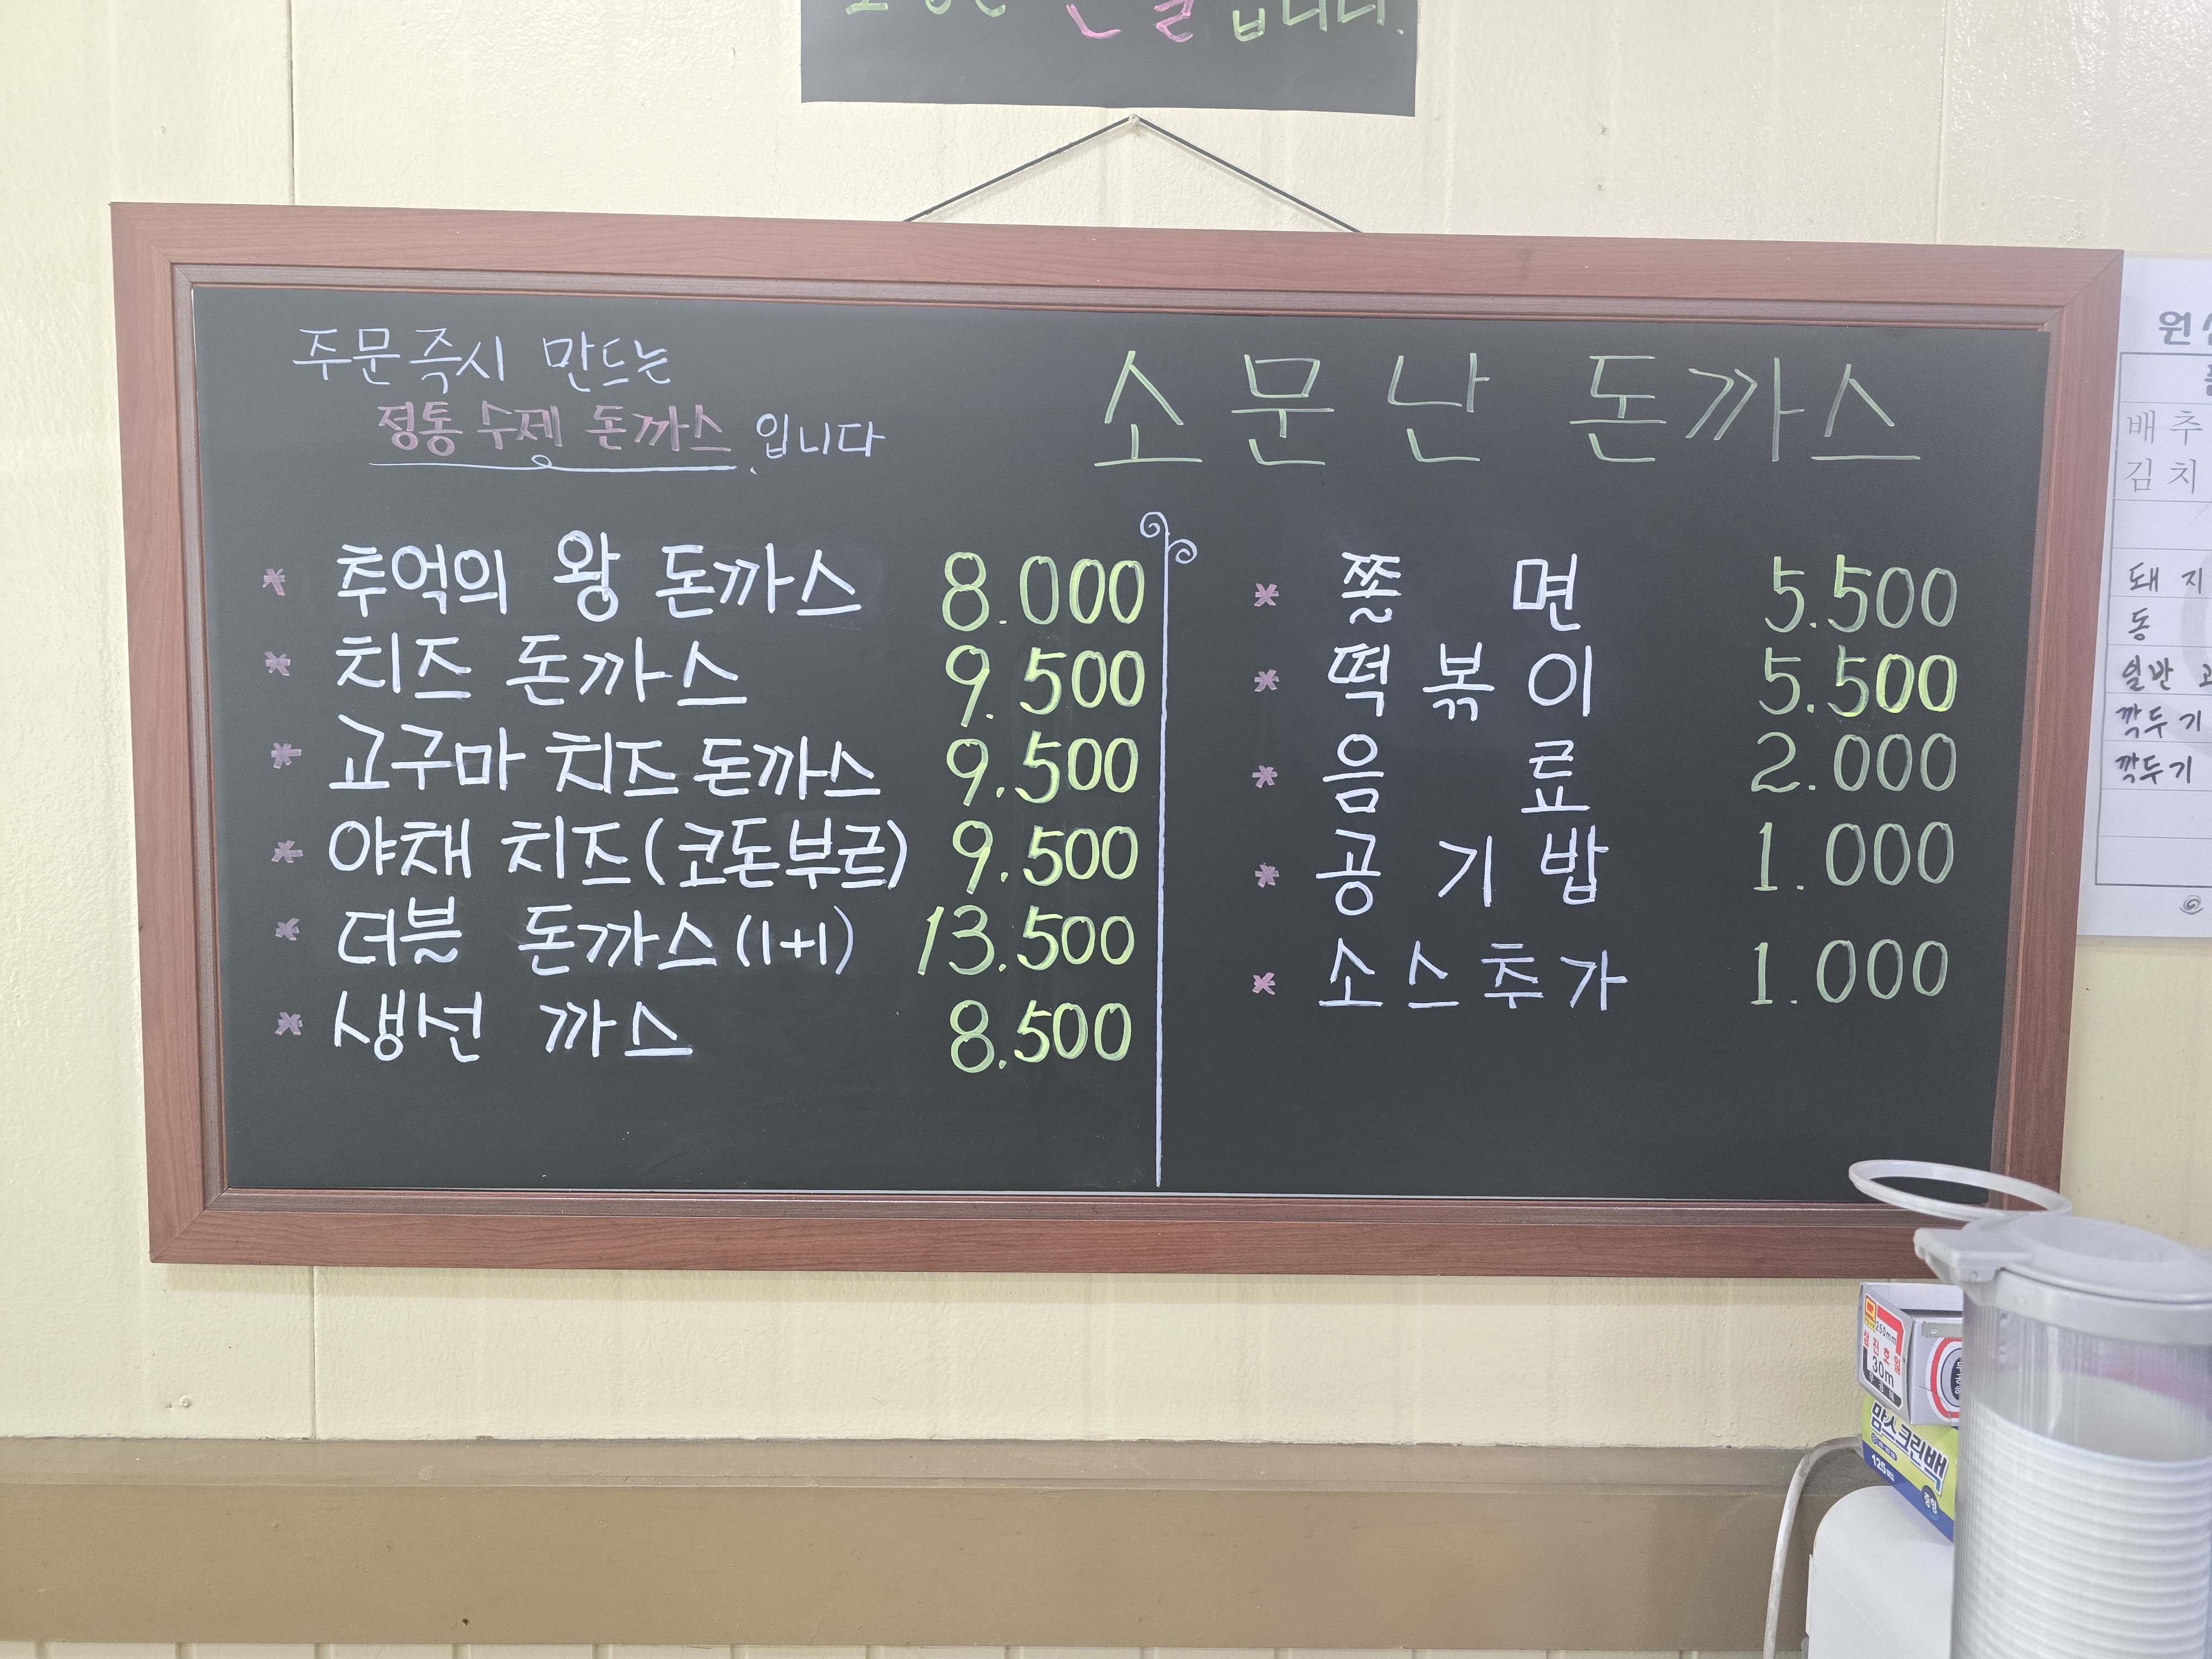 입니다.
주문즉시 만드는
정통 수제 돈까스 입니다
소문난 돈까스
* 추억의 왕 돈까스 8.000
* 치즈 돈까스 9.500
* 고구마 치즈 돈까스 9.500
* 야채 치즈(코돈부르) 9.500
* 더블 돈까스(1+1) 13.500
* 생선 까스 8.500
* 쫄면 5.500
* 떡볶이 5.500
* 음료 2.000
* 공기밥 1.000
* 소스추가 1.000
배추
김치
돼지
동
일반
깍두기
깍두기
250mm
30m
맘스크린백
125